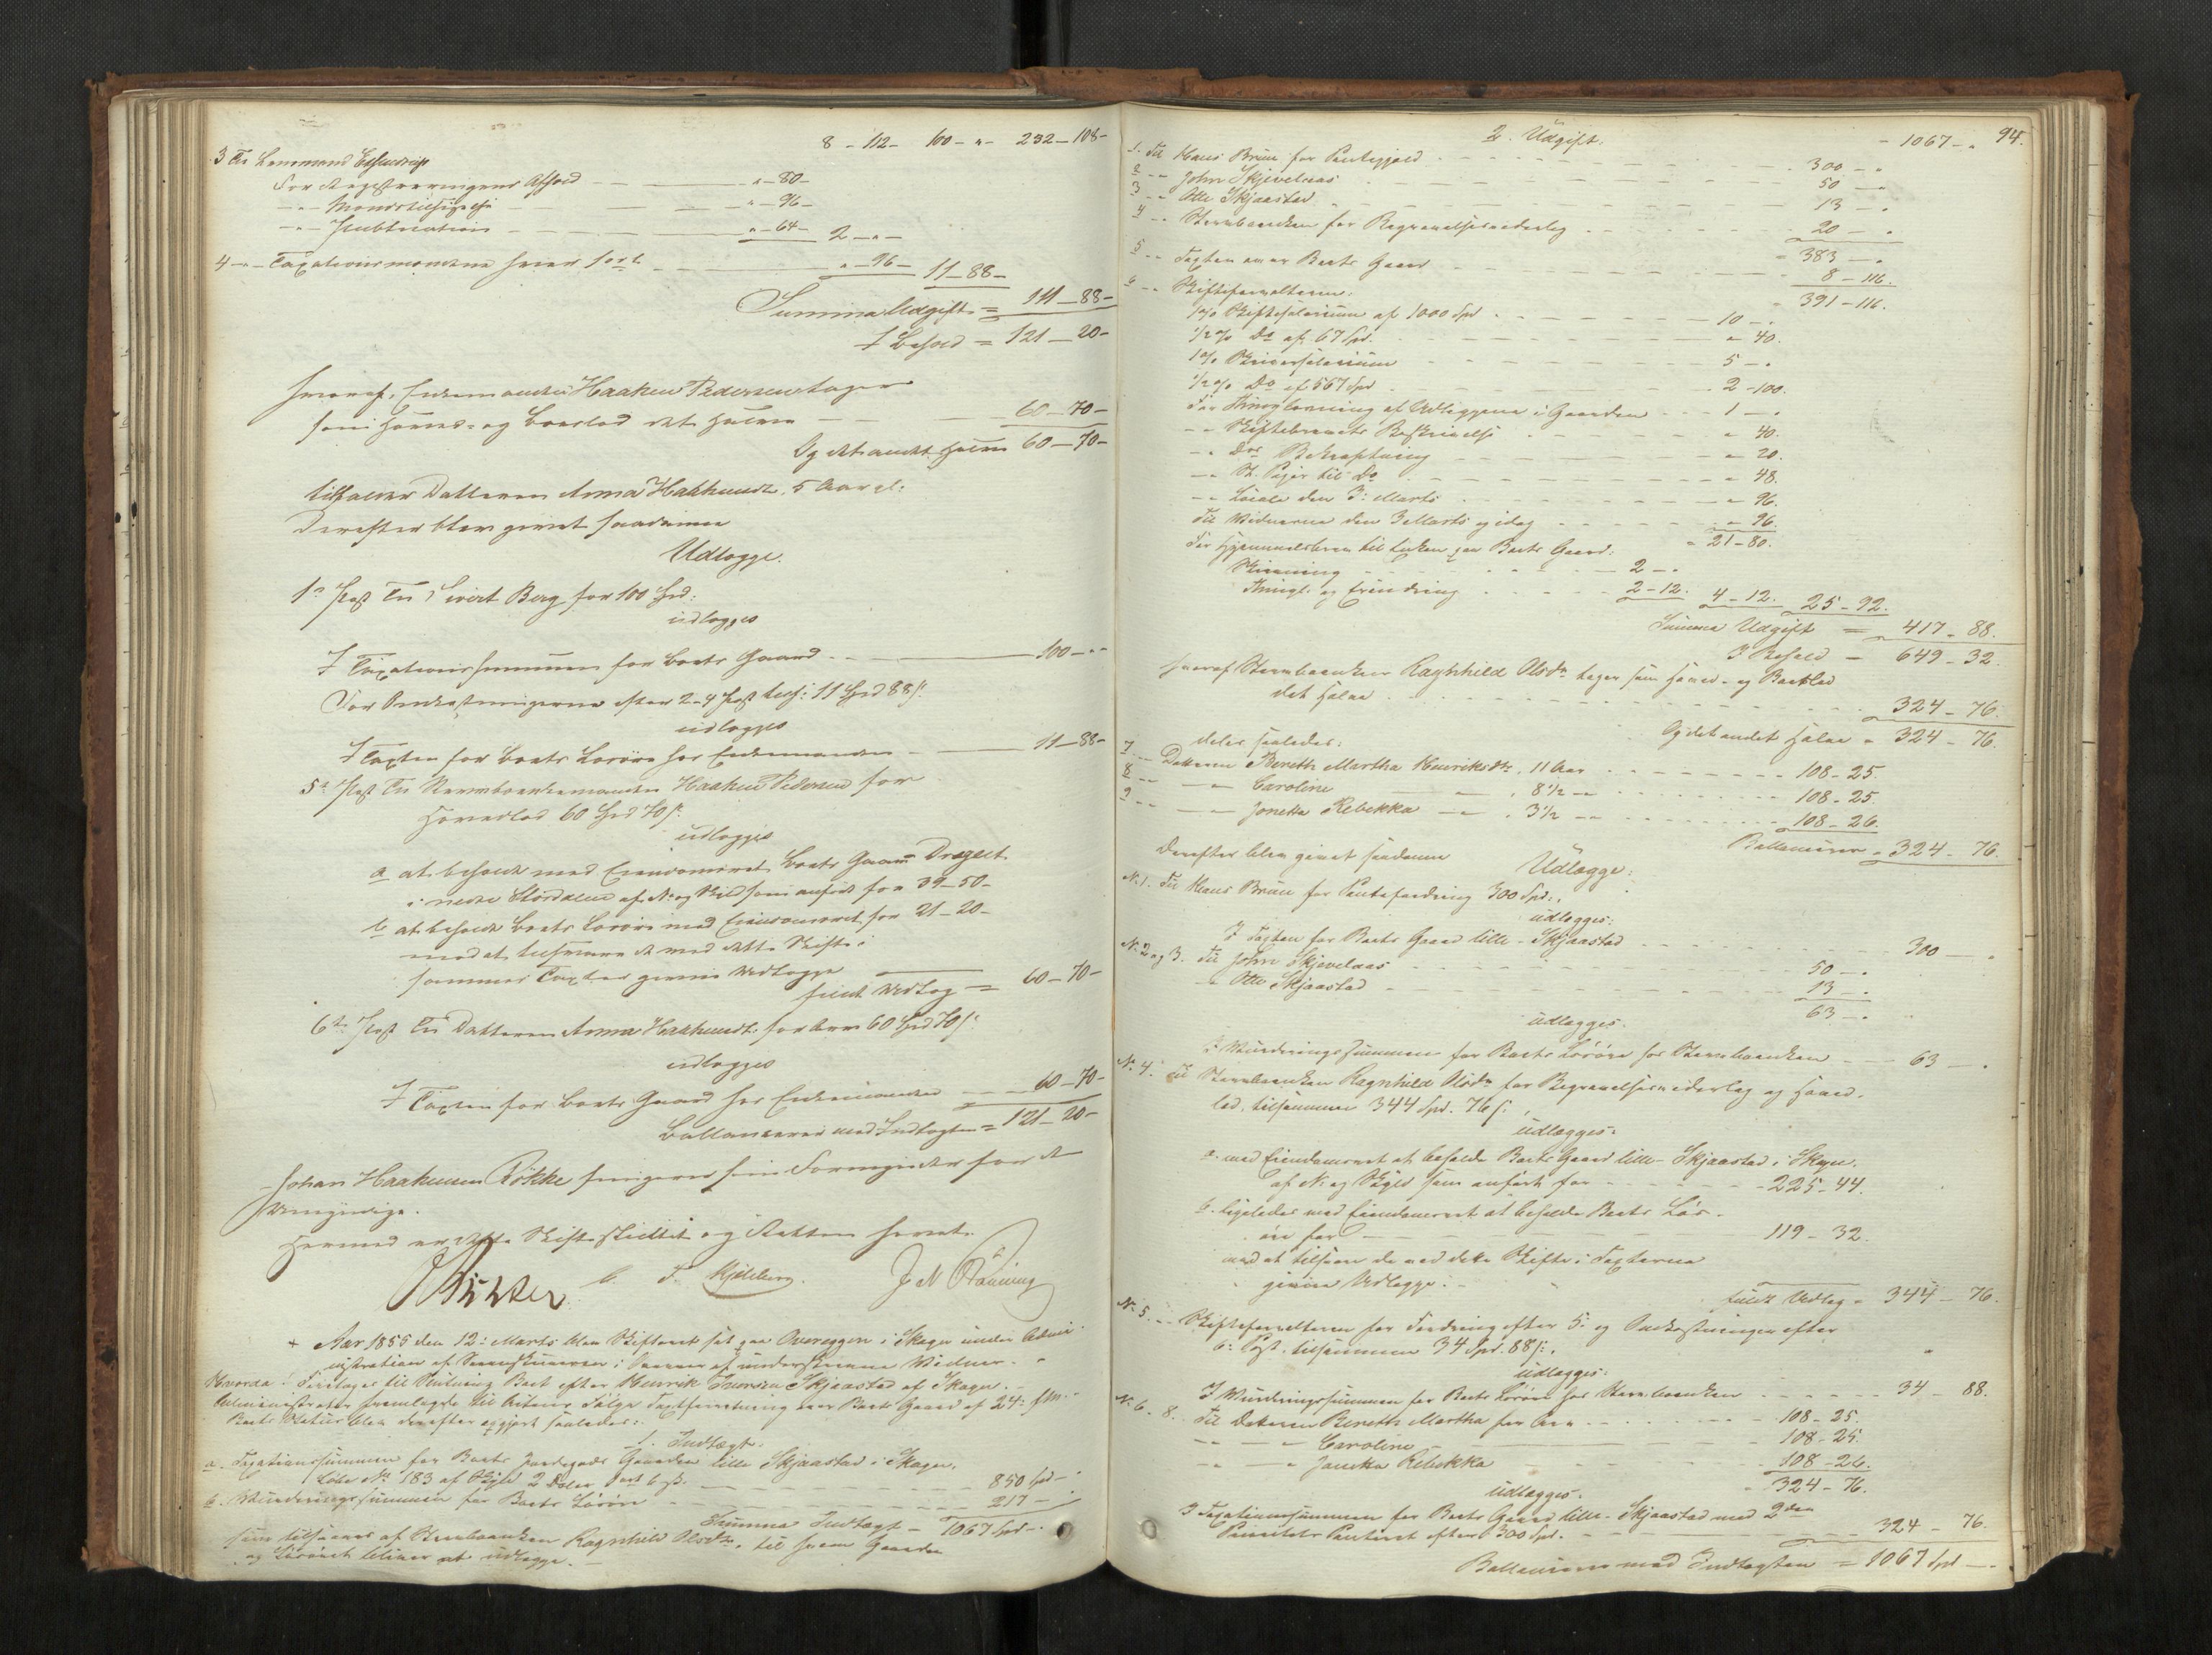 8 - 112 - 100 - " - 232 - 108 -
3 Til Lensmand
For Registreringens Afhold — " - 80 -
- " - — " - 96 -
- " - Publication — " - 64 - 2 - " -
4 - " - Taxationsmændene hver 1 ort — " - 96 - 11 - 88 -
Summa Udgift = 111 - 88 -
I Behold = 121 - 20 -
hvoraf Enkemanden Haaken Pedersen tager
som Hoved- og Boeslod det halve — 60 - 70 -
Og det andet halve 60 - 70 -
tilfalder Datteren Anna Haakensdtr. 5 Aar gl:
Derefter blev givet saadanne
Udlægge.
1ste Post Til Sivert Berg for 100 Spd:
udlægges
I Taxationssummen for Boets Gaard — 100 - "
For Omkostningerne efter 2 - 4 Post tils: 11 Spd 88 s.
udlægges
I Taxten for Boets Løsøre hos Enkemanden — 11 - 88 -
5te Post Til Stervboenkemanden Haaken Pedersen for
Hovedlod 60 Spd 70 s.
udlægges
a at beholde med Eiendomsret Boets Gaard
i nedre Stordalen af No og Skyld som anført for 39 - 50 -
b at beholde Boets Løsøre med Eiendomsret for 21 - 20 -
mod at tilsvare de ved dette Skifte i
sammes Taxter givne Udlægge
fuldt Udlæg = 60 - 70 -
6te Post Til Datteren Anna Haakensdt: for Arv 60 Spd 70 s.
udlægges
I Taxten for Boets Gaard hos Enkemanden — 60 - 70 -
Ballancerer med Indtægten = 121 - 20 -
Johan Haakensen Røkke fungerer som Formynder for den
Umyndige.
Hermed er dette Skifte sluttet og Retten hævet.
Aar 1855 den 12: Marts blev Skifteret sat paa Overeggen i Skogn under Admi-
nistration af Sorenskriveren i Overvær af underskrevne Vidner.
Hvorda: Foretoges til Slutning Boet efter Henrik Iversen Skjaastad af Skogn.
Administrator fremlagde til Actens Følge Taxtforretning over Boets Gaard af 24:
Boets Status blev derefter opgjort saaledes:
1. Indtægt.
a. Taxationssummen for Boets Jordegods Gaarden lille Skjaastad i Skogn,
Løbe No 183 af Skyld 2 Daler 1 ort 6 sk. — 850 Spd - "
b. Vurderingssummen for Boets Løsøre — 217 - "
Summa Indtægt - 1067 Spd - "
som tilsvares af Stervboenken Ragnhild Olsdr. til hvem Gaarden
og Løsøret bliver at udlægge. -
94.
2. Udgift. - 1067 - "
1. Til Hans Bruu for Pantegjæld — 300 - "
2 - " John Skjevelaas — 50 - "
3 - " Otte Skjaastad — 13 - "
4 - " Stervboenken for Begravelsesvederlag — 20 - "
- 383 - "
5 - " Taxten over Boets Gaard — 8 - 116.
- 391 - 116.
6 - " Skifteforvalteren:
1 % Skiftesalarium af 1000 Spd — 10 - "
1/2 % Do af 67 Spd. — " 40.
1 % Skriversalarium — 5 - "
1/2 % Do af 567 Spd — 2 - 100.
For Thinglæsning af Udlæggene i Gaarden — 1 - "
- " Skiftebrevets Beskrivelse — " 40.
- " Dets Bekræftning — " 20.
- " St. Papir til Do — " 48.
- " Locale den 3: Marts — " 96.
Til Vidnerne den 3 Marts og idag — " 96.
- 21 - 80.
For Hjemmelsbrev til Enken paa Boets Gaard:
Skrivning — 2 - "
Thingl. og Erindring — 2 - 12. 4 - 12. 25 - 92.
Summa Udgift = 417 - 88.
I Behold - 649 - 32.
hvoraf Stervboenken Ragnhild Olsdr. tager som Hoved- og Boeslod
det halve — 324 - 76.
Og det andet halve - 324 - 76.
deles saaledes:
7 - " Datteren Bereth Martha Henriksdtr. 11 Aar — 108 - 25.
8 - " - " - Caroline - " - 8 1/2 - " — 108 - 25.
9 - " - " - Jonetta Rebekka - " - 3 1/2 - " — 108 - 26.
Ballancerer - 324 - 76.
Derefter blev givet saadanne Udlægge:
No 1. Til Hans Bruu for Pantefordring 300 Spd:,
udlægges:
I Taxten for Boets Gaard lille - Skjaastad — 300 - "
No 2 og 3. Til John Skjevelaas — 50 - "
- " Otte Skjaastad — 13 - "
63 - "
udlægges.
I Vurderingssummen for Boets Løsøre hos Stervboenken — 63 - "
No 4. Til Stervboenken Ragnhild Olsdr. for Begravelsesvederlag og Hoved-
lod, tilsammen 344 Spd. 76 s:,
udlægges:
a. med Eiendomsret at beholde Boets Gaard lille - Skjaastad i Skogn,
af No og Skyld som anført for — 225 - 44.
b. ligeledes med Eiendomsret at beholde Boets Løs-
øre for — 119 - 32.
mod at tilsvare de ved dette Skifte i Taxterne
givne Udlægge. -
fuldt Udlæg - 344 - 76.
No 5. - " Skifteforvalteren for Fordring efter 5: og Omkostninger efter
6: Post, tilsammen 34 Spd. 88 s:,
udlægges.
I Vurderingssummen for Boets Løsøre hos Stervboenken — 34 - 88.
No 6 - 8. Til Datteren Bereth Martha for Arv — 108 - 25.
- " - " - Caroline — 108 - 25.
- " - " - Jonetta Rebekka — 108 - 26.
- 324 - 76.
udlægges.
I Taxationssummen for Boets Gaard lille - Skjaastad med 2den
Prioritets Panteret efter 300 Spd. — 324 - 76.
Ballancerer med Indtægten = 1067 Spd - "